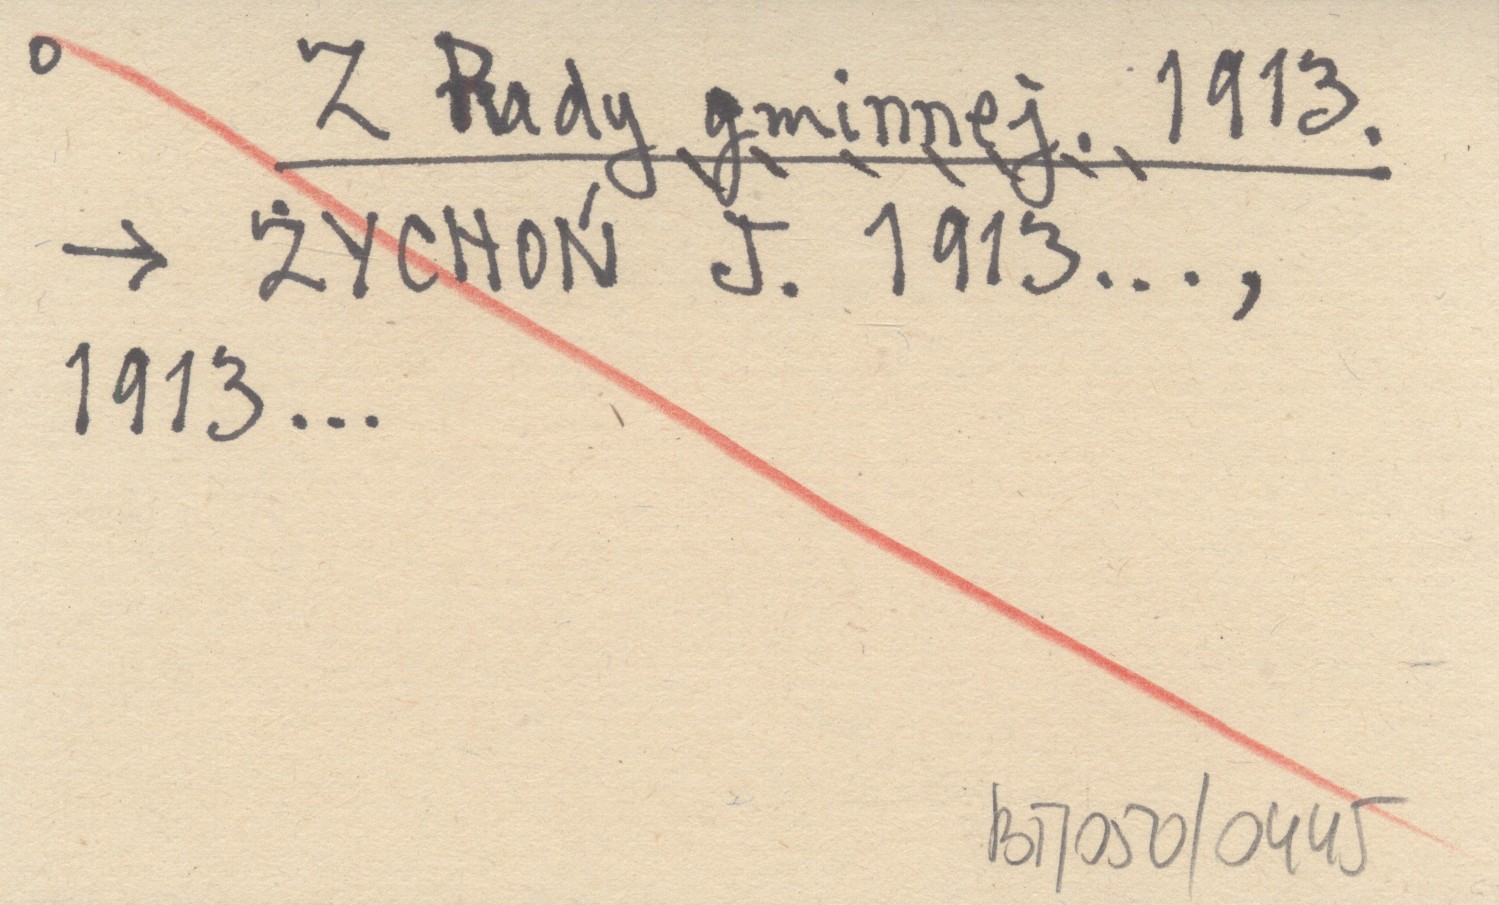 o Z Rady gminnej. 1913.
→ ŻYCHOŃ J. 1913...,
1913...
BT/050/0445